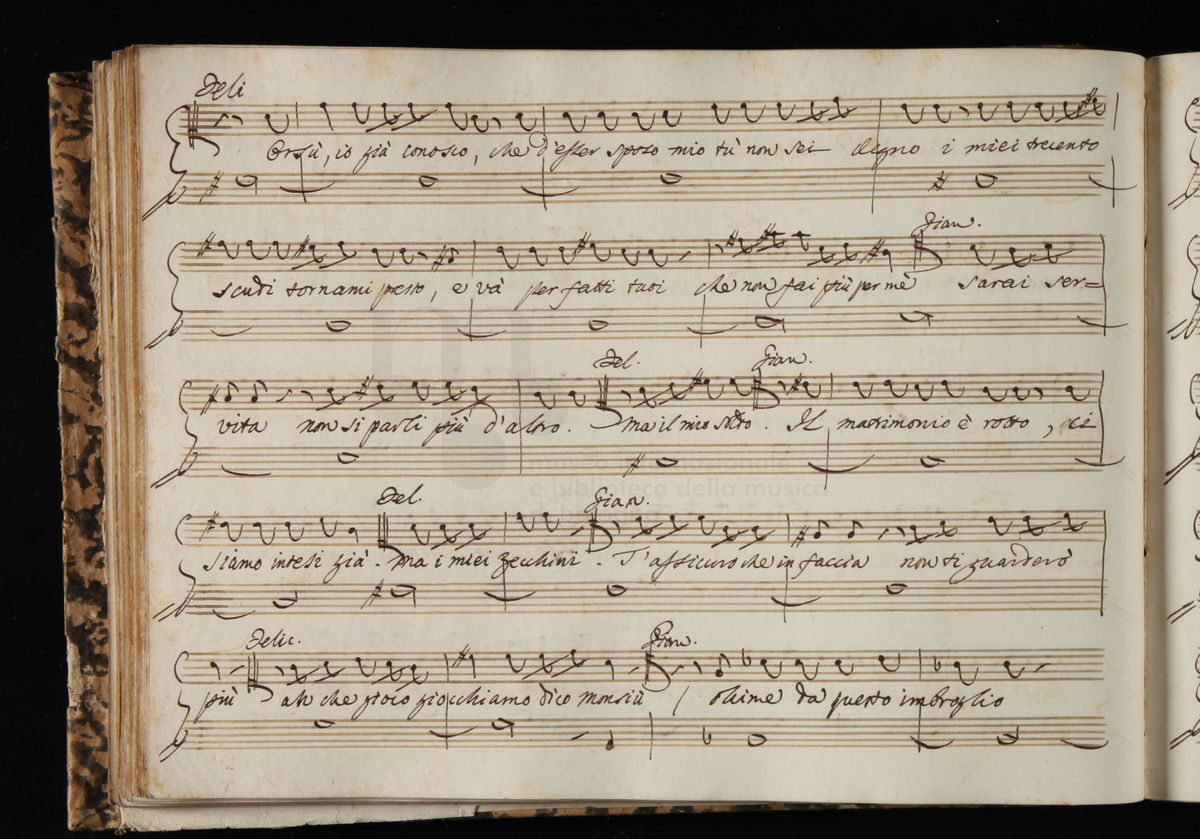 Deli
Orsù, io già conosco, che d'esser sposo mio tù non sei degno i miei trecento
Gian.
scudi tornami presto, e và per fatti tuoi che non fai più per mè sarai ser=
Del. Gian.
vita non si parli più d'altro. Ma il mio . Il matrimonio è rotto, ci
museo internazionale
e biblioteca della musica
Del. Gian.
siamo intesi già. Ma i miei zecchini. T'assicuro che in faccia non ti guarderò
Delic. Gian.
più ah che gioco giocchiamo dico monsiù ( ohime da questo imbroglio